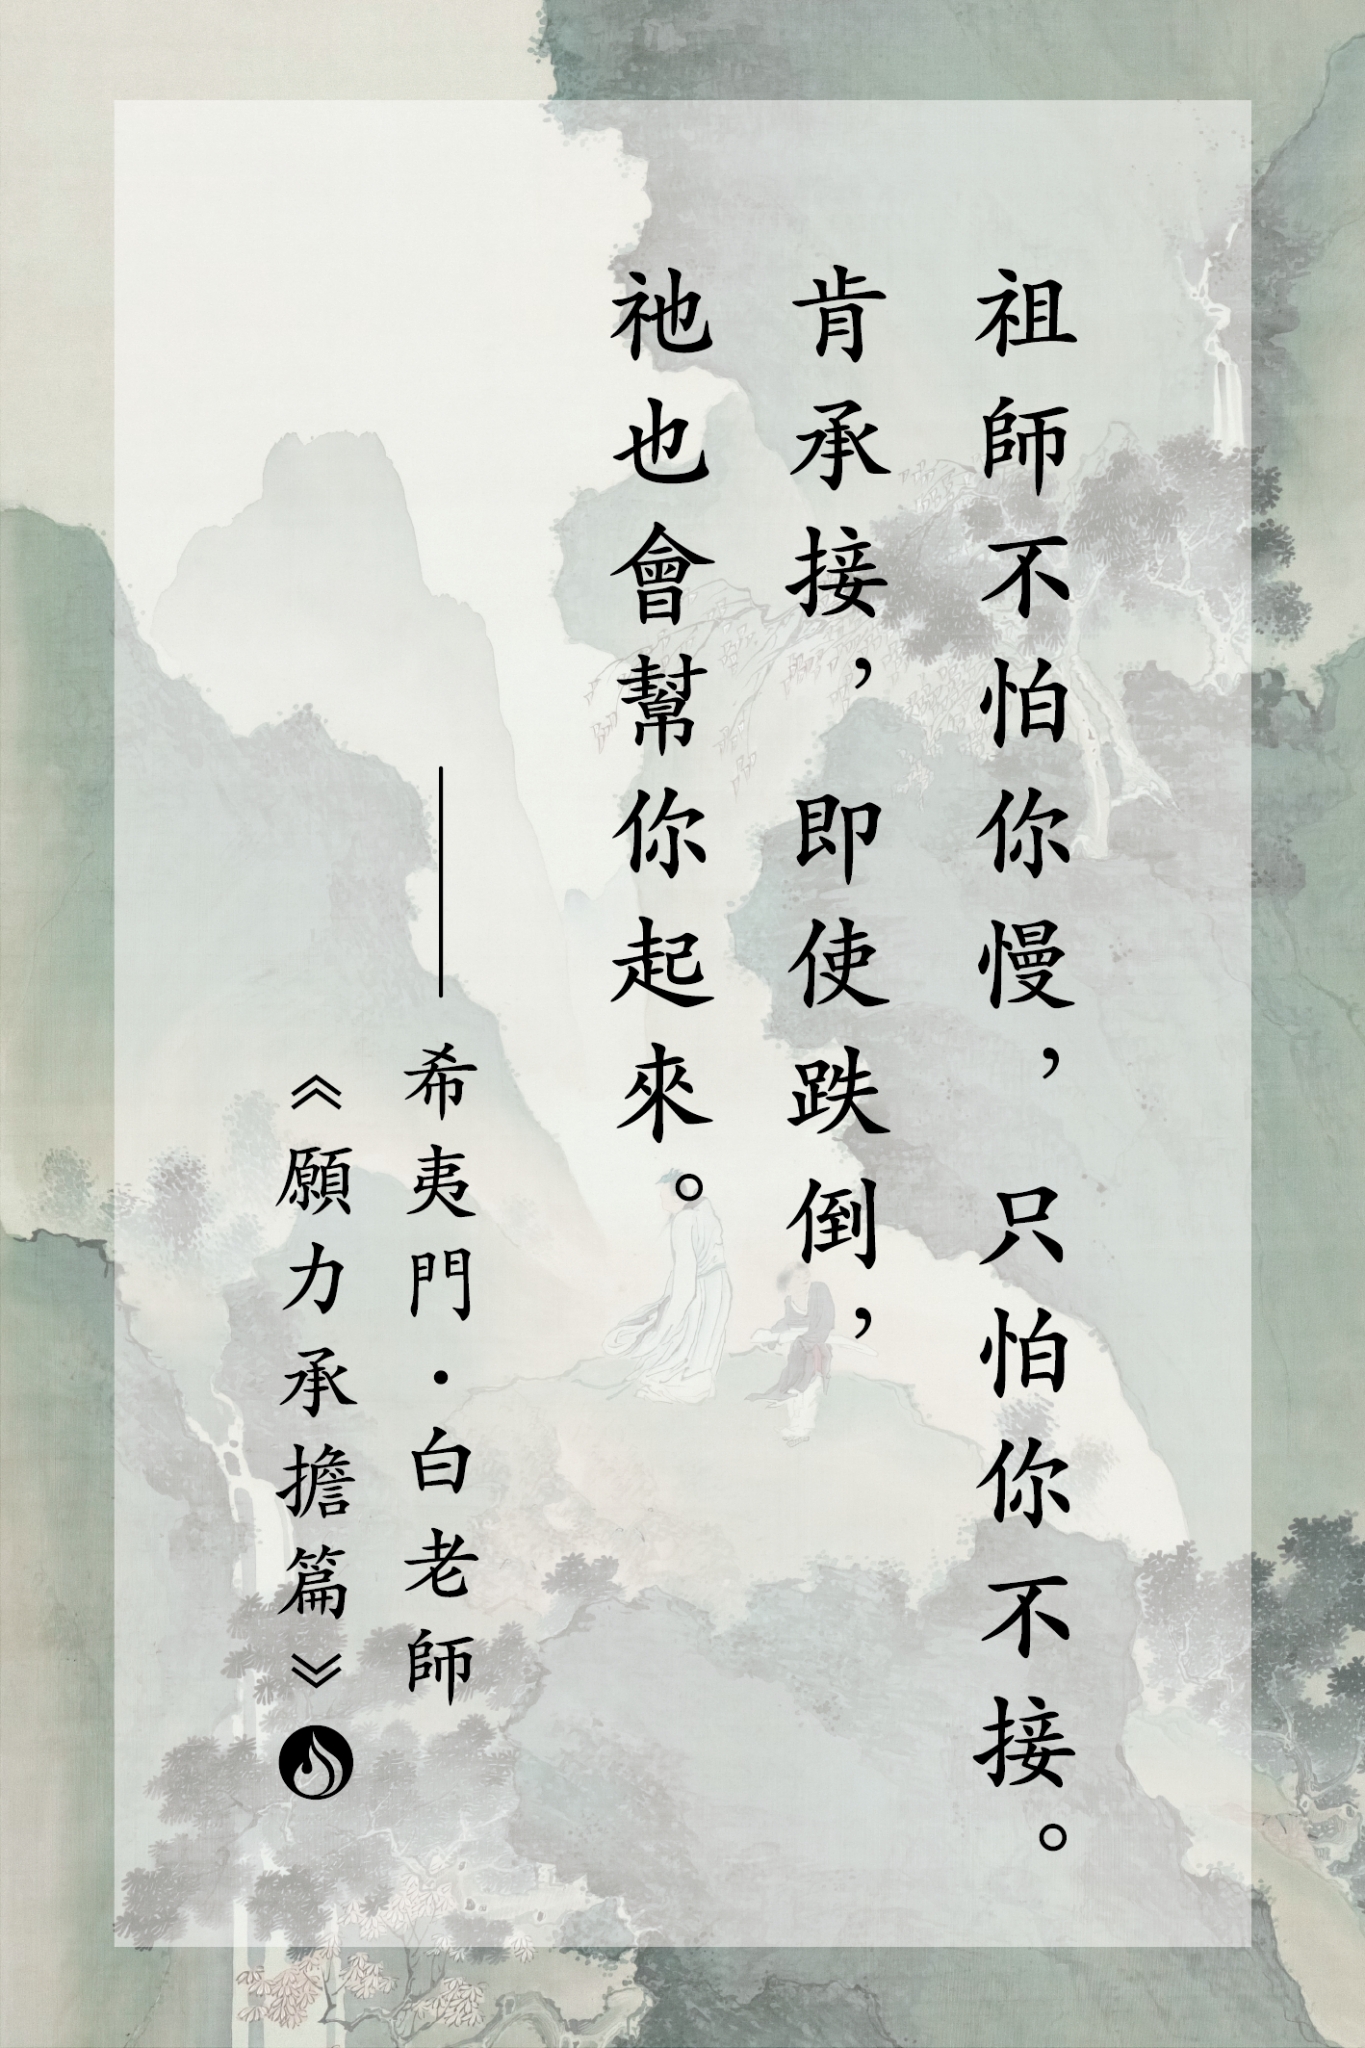 祖師不怕你慢，只怕你不接。
肯承接，即使跌倒，
祂也會幫你起來。
——希夷門·白老師
《願力承擔篇》